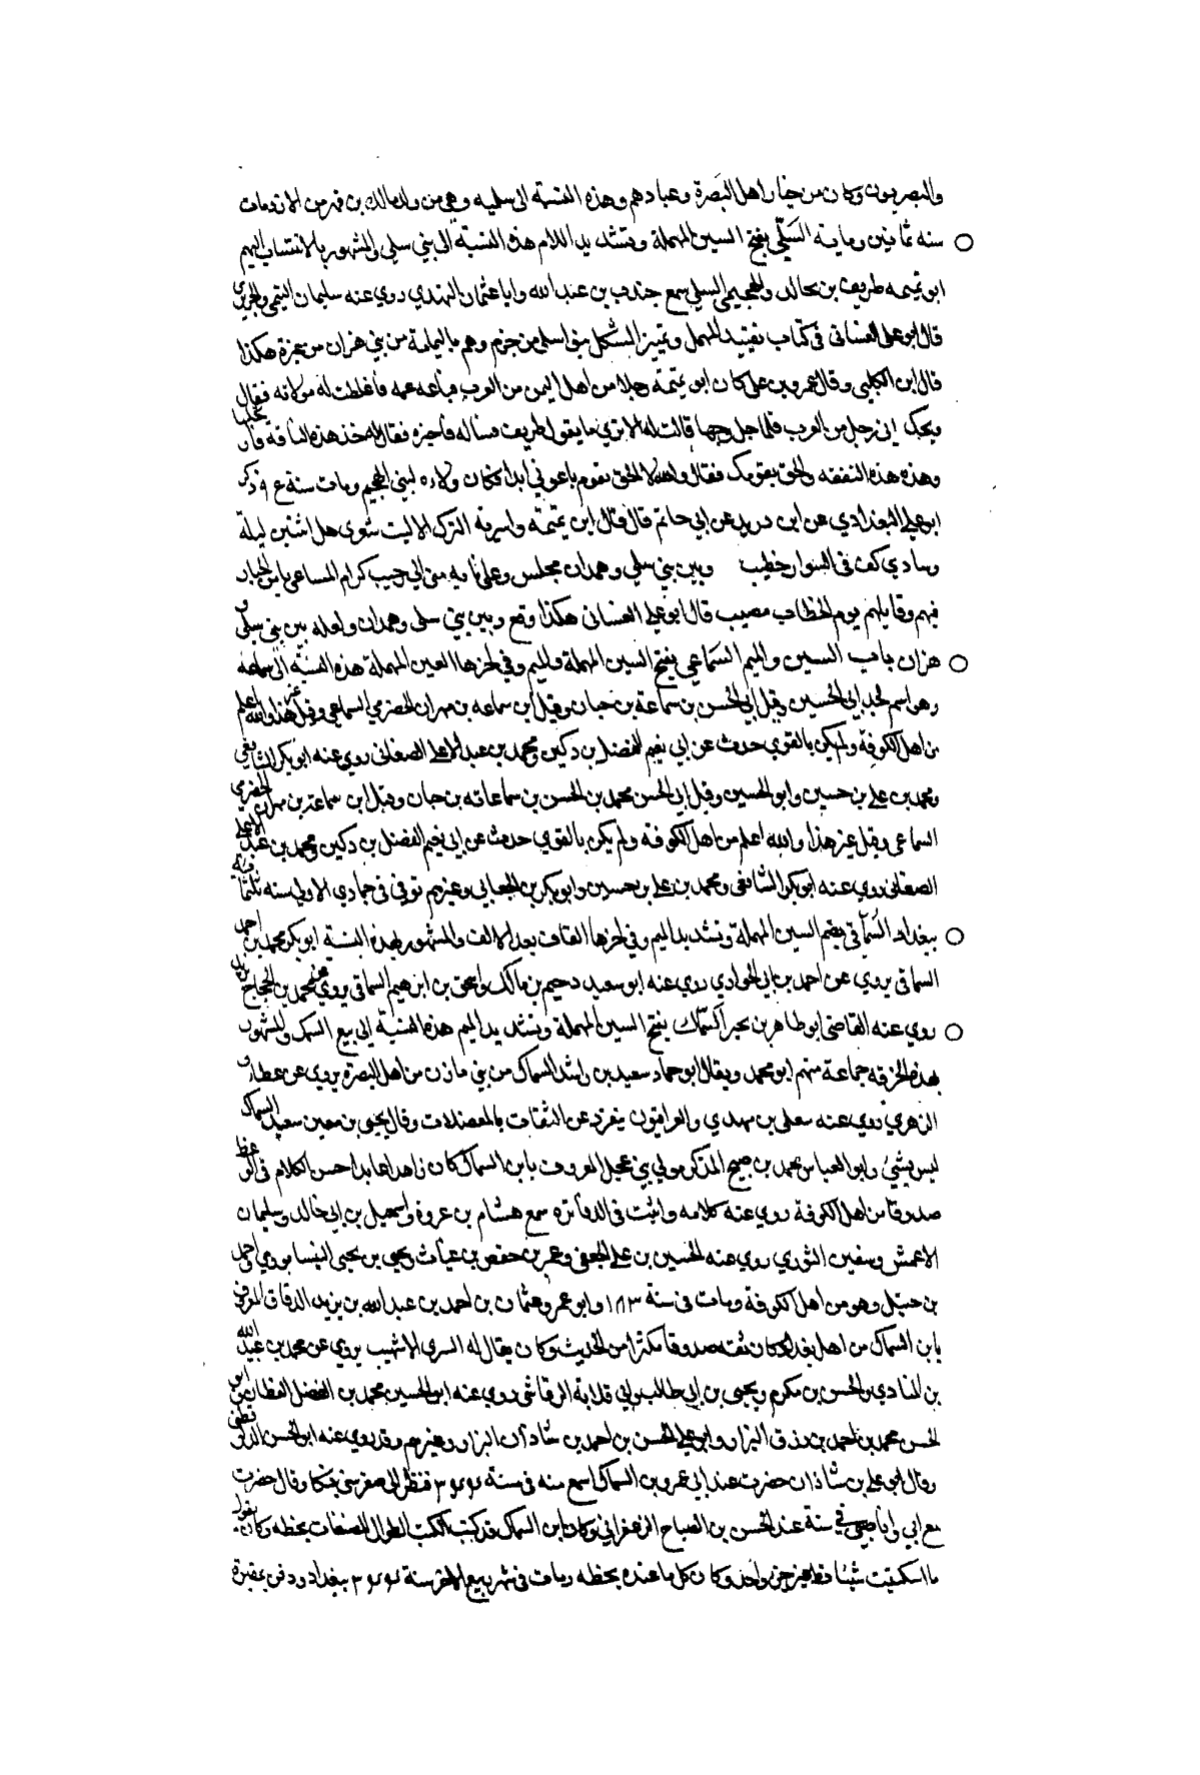 والبصريون وكان من خيار اهل البصرة وعبادهم وهذه النسبة الى سليه وهي من ولد مالك بن فهر من الازد مات
سنه ثمانين وماية السَلّي بفتح السين المهملة وتشديد اللام هذه النسبة الى بني سلي والمشهور بالانتساب اليهم
ابو تميمه طريف بن مجالد والهجيمي السلي سمع جندب بن عبد الله وابا عثمان النهدي روي عنه سليمان التيمي والجريري
قال ابو على الغساني في كتاب تقييد المهمل وتمييز المشكل بنو اسلمي من جرم وهم باليمامة من بني هزان من عنزة هكذا
قال ابن الكلبي وقال عمرو بن على كان ابو تميمة رجلا من اهل اليمن من العرب فباعه عمه فاغلظت له مولاته فقال
ويحك اني رجل من العرب فلما جا زوجها قالت له الا تري ما يقول طريف فساله فاخبره فقال له خذ هذه الناقة فاركبها
وهذه هذه النفقه والحق بقومك فقال والله لا الحق بقوم باعوني ابدا فكان ولاوه لبني الهجيم ومات سنة ٩٤ ذكر
ابو على البغدادي عن ابن دريد عن ابي حاتم قال قال ابن تميمة واسرته الترك الا ليت شعري هل ابيتن ليلة
وسادي كف في السوار خطيب وبين بني سلي وهمدان مجلس وعلى نايه مني الي حبيب كرام المساعي يامن الجار
فيهم وقايلهم يوم الخطاب مصيب قال ابو على الغساني هكذا وقع وبين بني سلى وهمدان ولعله بين بني سلى و
هزان باب السين والميم السَماعي بفتح السين المهملة والميم وفي اخرها العين المهملة هذه النسبة الى سماعه
وهو اسم لجد ابي الحسين وقيل ابي الحسن بن سماعة بن حيان وقيل ابن سماعه بن مهران الحضرمي السماعي وقيل غير هذا والله اعلم
من اهل الكوفة ولم يكن بالقوي حدث عن ابي نعيم الفضل بن دكين ومحمد بن عبد الاعلى الصنعاني روي عنه ابو بكر الشافعي
ومحمد بن علي بن حسين وابو الحسين وقيل ابي الحسن محمد بن الحسن بن سماعاته بن حيان وقيل ابن سماعة بن مهران الحضرمي
السماعي وقيل غير هذا والله اعلم من اهل الكوفة ولم يكن بالقوي حدث عن ابي نعيم الفضل بن دكين ومحمد بن عبد الاعلى
الصنعاني روي عنه ابو بكر الشافعي ومحمد بن علي بن حسين وابو بكر بن الجعابي وغيرهم توفي في جمادي الاولى سنه ثلثمايه
ببغداد السُماقي بضم السين المهملة وتشديد الميم وفي اخرها القاف بعد الالف والمشهور بهذه النسبة ابو بكر محمد بن احمد
السماقي يروي عن احمد بن ابي الحوادي روي عنه ابو سعيد دحيم بن مالك واسحق بن ابراهيم السماقي يروي عن محمد بن الحجاج بن يزيد
روي عنه القاضى ابو طاهر بن بجير السمّاك بفتح السين المهملة وتشديد الميم هذه النسبة الى بيع السمك والمشهور
بهذه الحرفه جماعة منهم ابو محمد ويقال ابو حماد سعيد بن راشد السماك من بني مازن من اهل البصرة يروي عن عطا و
الزهري روي عنه معلى بن مهدي والعراقيون ينفرد عن الثقات بالمعضلات وقال يحيى بن معين سعيد السماك
ليس بشيئ وابو العباس محمد بن صبيح المذكر مولى بني عجل المعروف بابن السماك كان زاهدا عابدا حسن الكلام في الوعظ
صدوقا من اهل الكوفة روي عنه كلامه واثبت في الدفاتره سمع هشام بن عروة واسمعيل بن ابي خالد وسليمان
الاعمش وسفين الثوري روي عنه الحسين بن علي الجعفي وعمر بن حفص بن غياث ويحيى بن يحيى النيسابوري واحمد
بن حنبل وهو من اهل الكوفة ومات في سنة ١٨٣ وابو عمرو عثمان بن احمد بن عبد الله بن يزيد الدقاق المعروف
بابن السماك من اهل بغداد كان ثقه صدوقا مكثرا من الحديث وكان يقال له السري الاشهب يروي عن محمد بن عبيد الله
بن المنادي والحسن بن مكرم ويحيى بن ابي طالب وابي قلابة الرقاشي روي عنه ابو الحسين محمد بن الفضل القطان وابو
الحسن محمد بن احمد بن رزق البزار وابو على الحسن بن احمد بن شاذان البزار وغيرهم وقد روي عنه ابو الحسن الدارقطني
وقال ابو علي بن شاذان حضرت عند ابي عمرو بن السماك اسمع منه في سنة ٣٤٤ فنظر الى صغر سني فبكا وقال حضرت
مع ابي وانا صبي في سنة عند الحسن بن الصباح الزعفراني وكان ابن السماك قد كتب الكتب الطوال المصنفات بخطه وكان يقول
ما استكتبت شيئا قط غير جزء واحد وكان كل ما عنده بخطه ومات في شهر ربيع الاخر سنة ٣٤٤ ببغداد ودفن بمقبرة